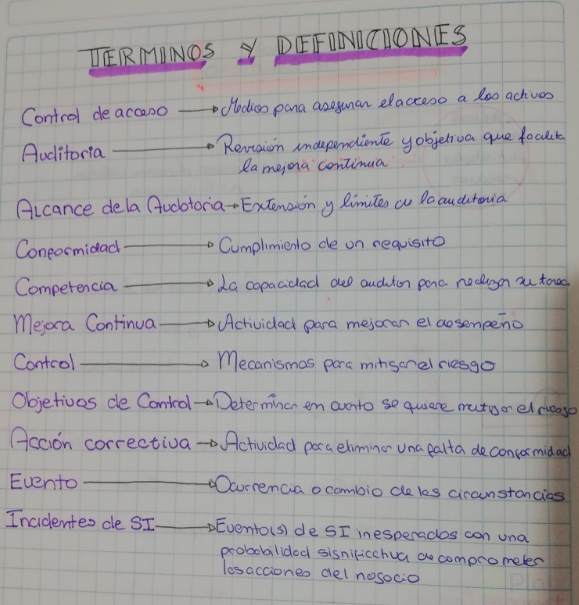 TERMINOS Y DEFINICIONES
Control de acceso → Medios para asegurar el acceso a los activos
Auditoria → Revisión independiente y objetiva que facilita
la mejora continua
Alcance de la Auditoria → Extensión y límites de la auditoria
Conformidad → Cumplimiento de un requisito
Competencia → La capacidad del auditor para realizar su tarea
Mejora Continua → Actividad para mejorar el desempeño
Control → Mecanismos para mitigar el riesgo
Objetivos de Control → Determinar en cuanto se quiere mitigar el riesgo
Acción correctiva → Actividad para eliminar una falta de conformidad
Evento → Ocurrencia o cambio de las circunstancias
Incidentes de SI → Evento(s) de SI inesperados con una
probabilidad significativa de comprometer
las acciones del negocio